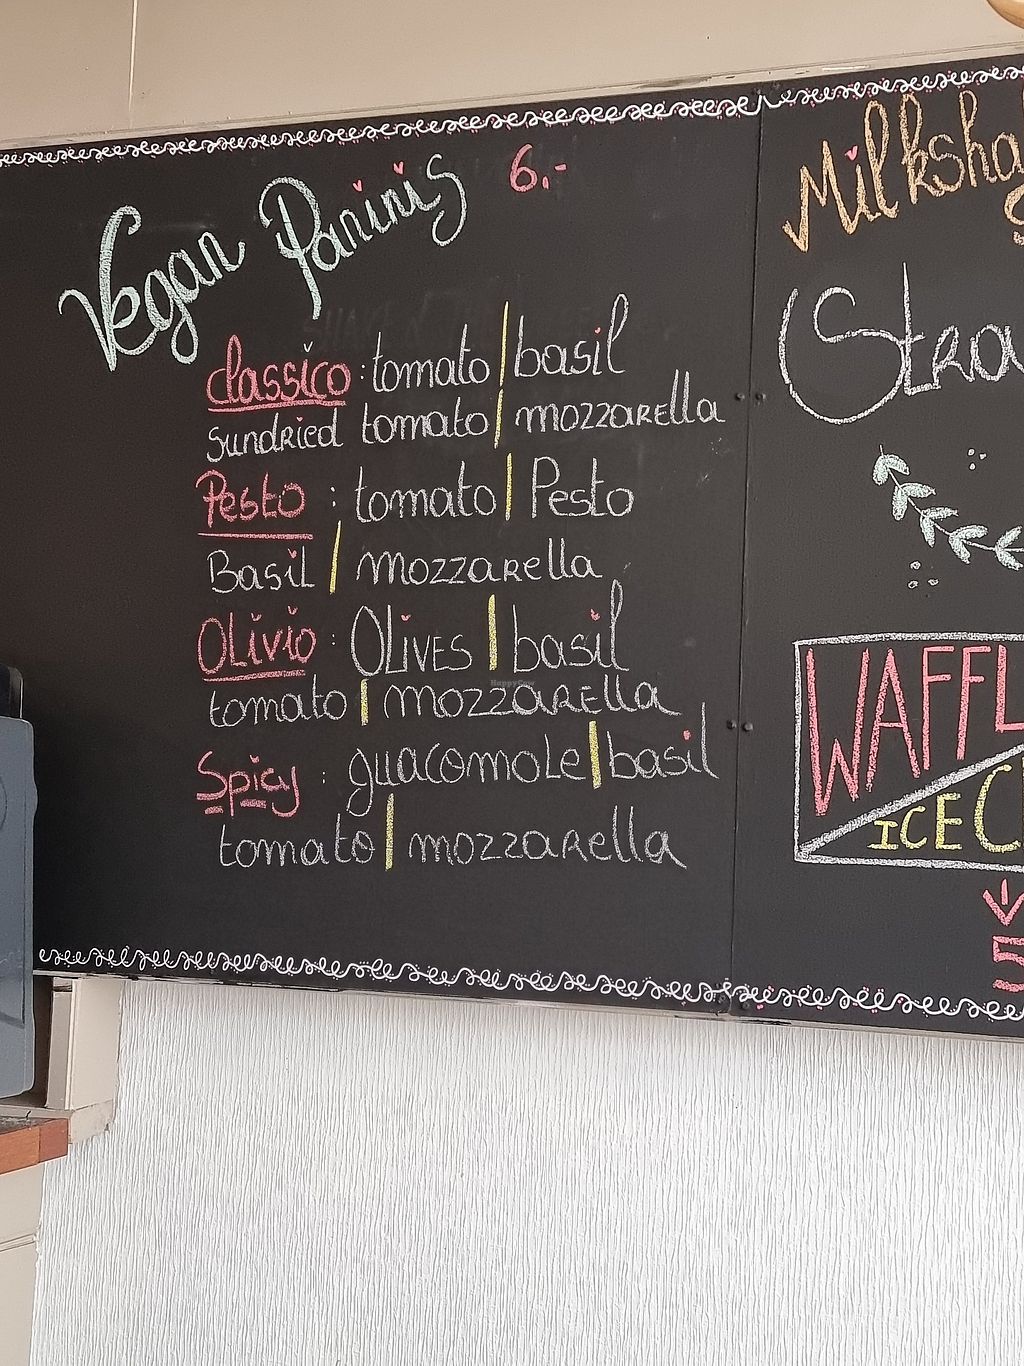 Vegan Paninis 6.-
classico : tomato | basil
sundried tomato | mozzarella
Pesto : tomato | Pesto
Basil | mozzarella
OLivio : OLIVES | basil
tomato | mozzarella
Spicy : guacomole | basil
tomato | mozzarella
HappyCow
ICE
5